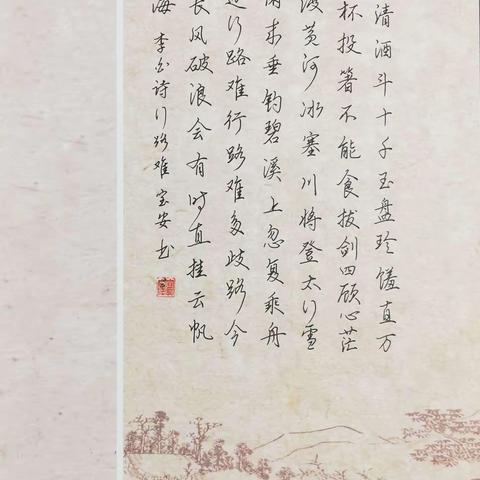 清酒斗十千玉盘珍馐直万
杯投箸不能食拔剑四顾心茫
渡黄河冰塞川将登太行雪
闲来垂钓碧溪上忽复乘舟
边行路难行路难多歧路今
长风破浪会有时直挂云帆
海 李白诗行路难 宝安书